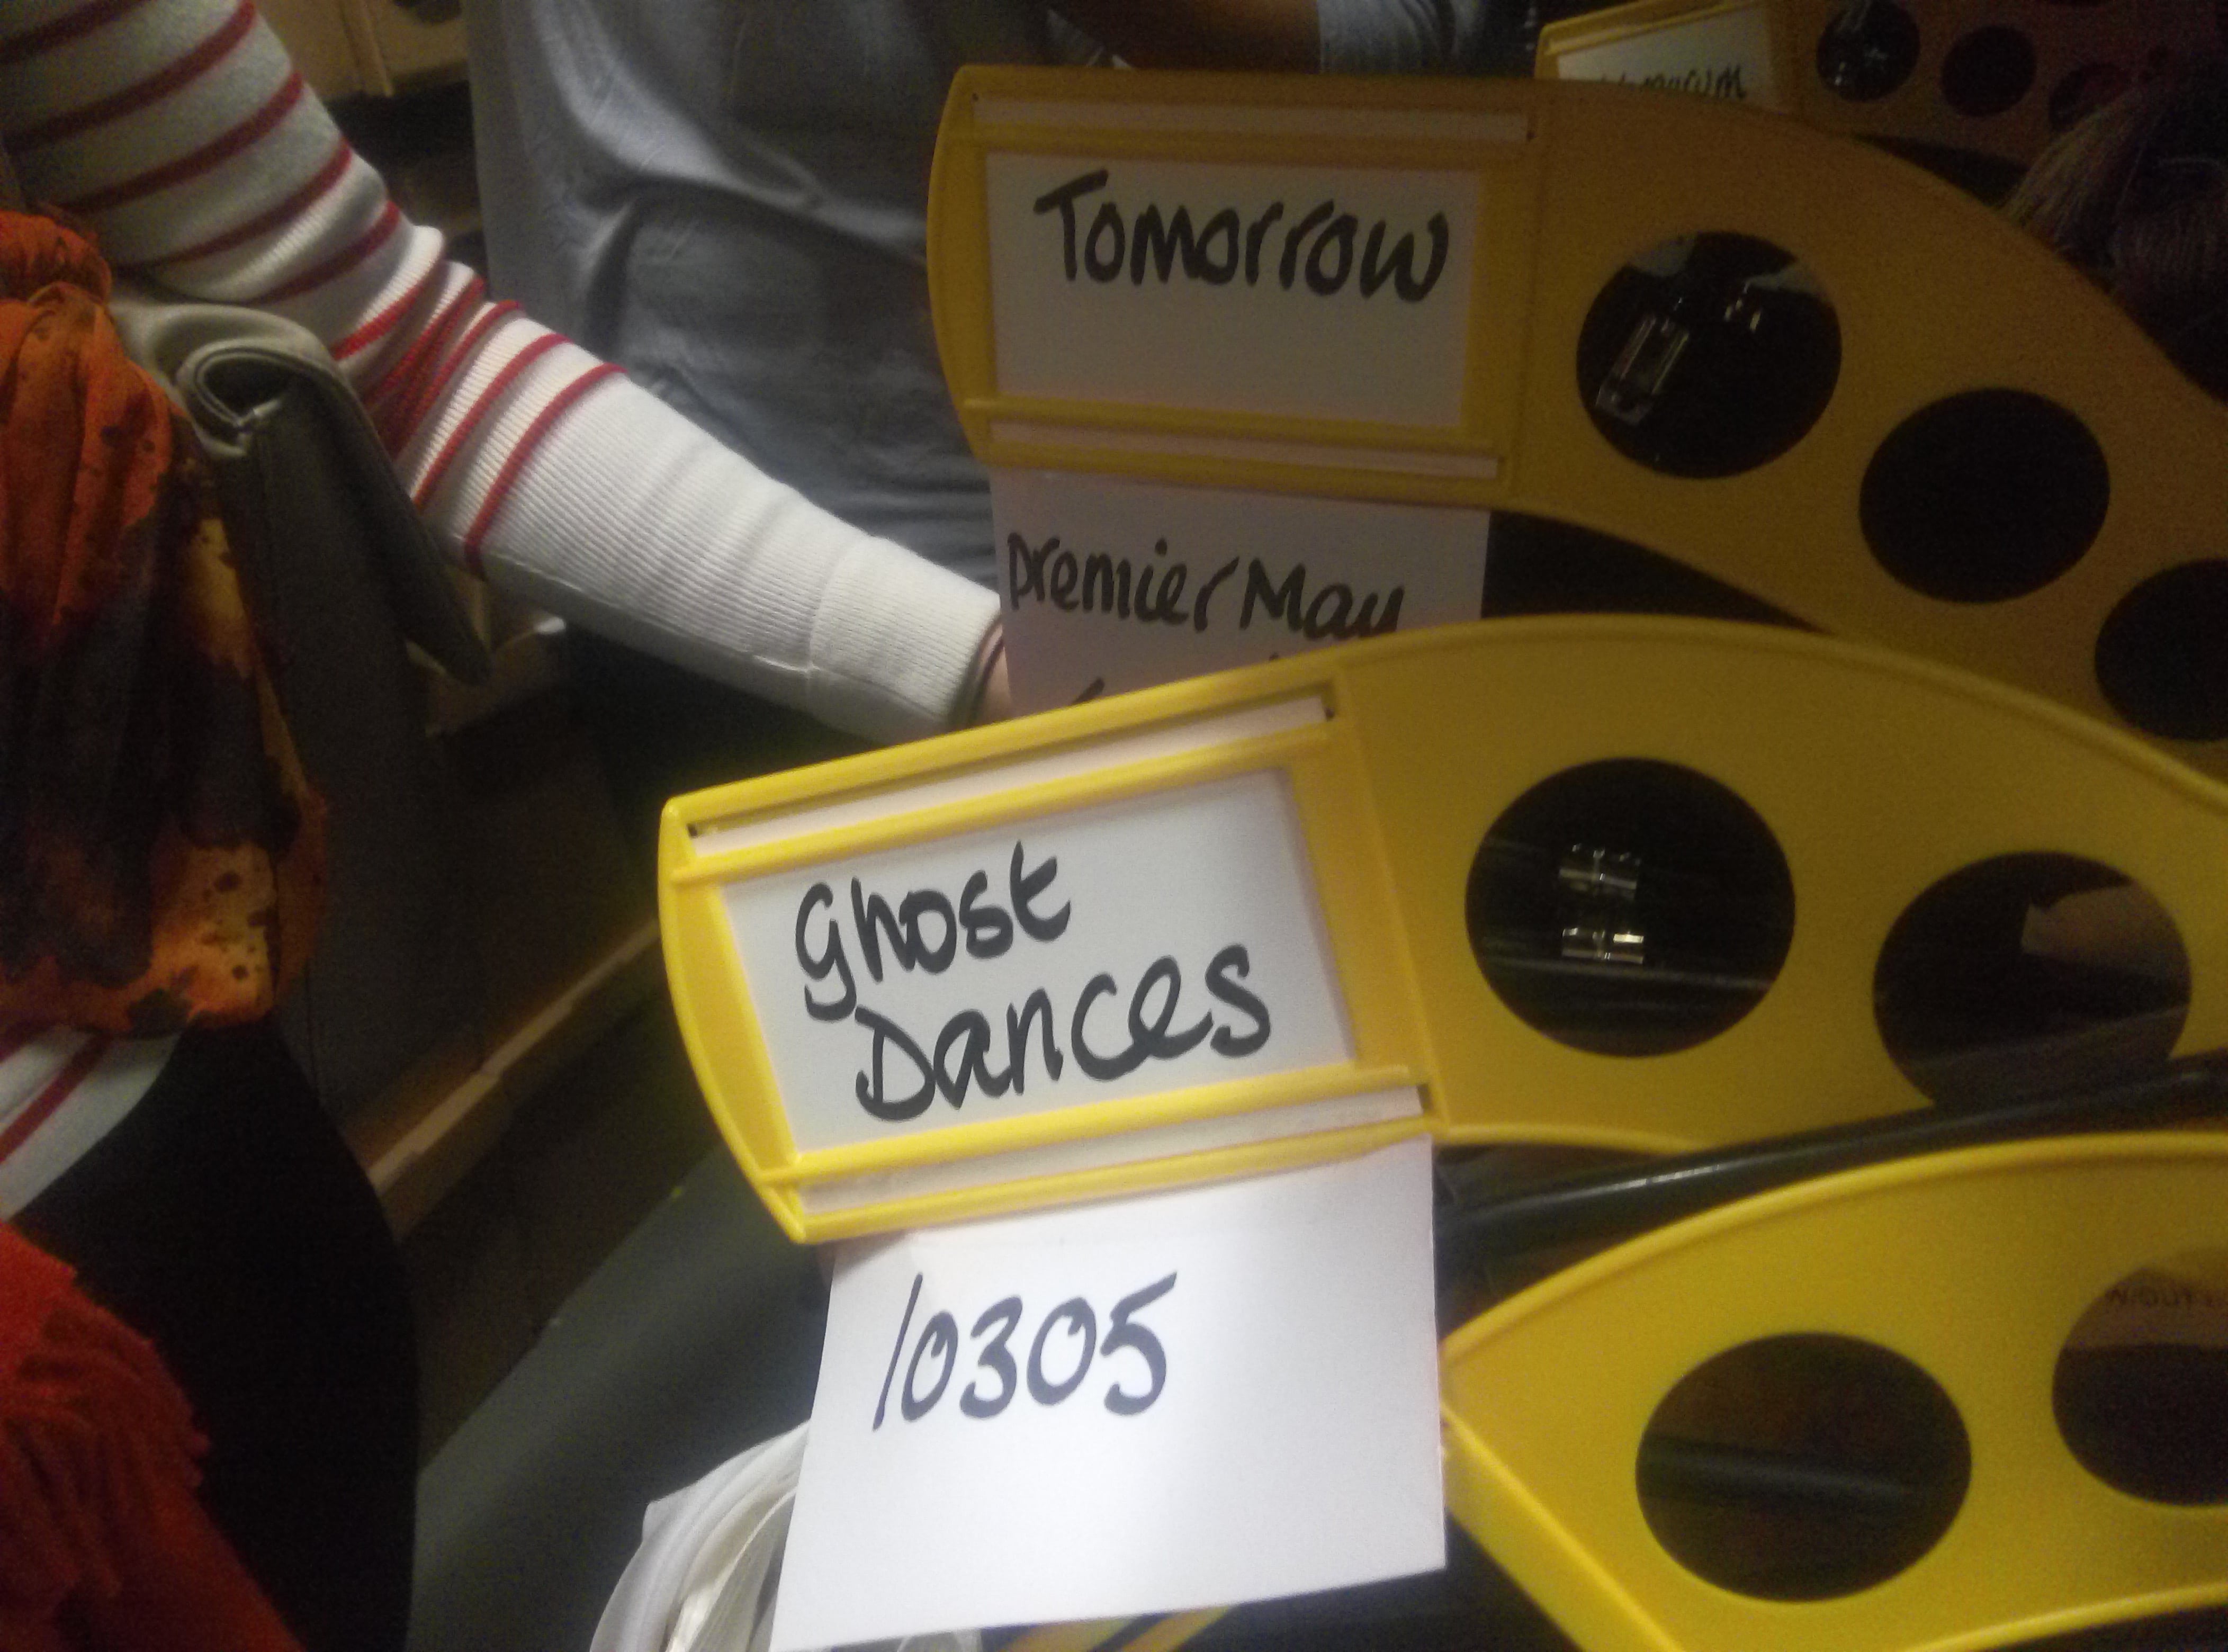 Tomorrow
Premier May
Ghost
Dances
10305